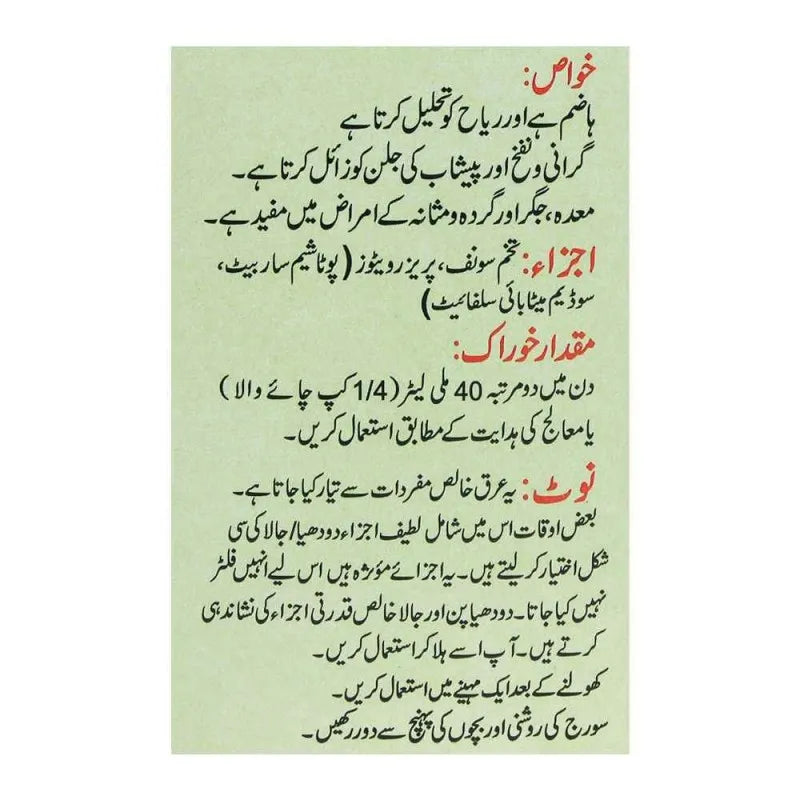 خواص:
ہاضم ہے اور ریاح کو تحلیل کرتا ہے
گرانی و نفخ اور پیشاب کی جلن کو زائل کرتا ہے۔
معدہ، جگر اور گردہ و مثانہ کے امراض میں مفید ہے۔
اجزاء: تخم سونف، پریزرویٹوز (پوٹاشیم ساربیٹ،
سوڈیم میٹابائی سلفائیٹ)
مقدار خوراک:
دن میں دو مرتبہ 40 ملی لیٹر (1/4 کپ چائے والا)
یا معالج کی ہدایت کے مطابق استعمال کریں۔
نوٹ: یہ عرق خالص مفردات سے تیار کیا جاتا ہے۔
بعض اوقات اس میں شامل لطیف اجزاء دودھیا/جالا کی سی
شکل اختیار کر لیتے ہیں۔ یہ اجزائے مؤثرہ ہیں اس لیے انہیں فلٹر
نہیں کیا جاتا۔ دودھیا پن اور جالا خالص قدرتی اجزاء کی نشاندہی
کرتے ہیں۔ آپ اسے ہلا کر استعمال کریں۔
کھولنے کے بعد ایک مہینے میں استعمال کریں۔
سورج کی روشنی اور بچوں کی پہنچ سے دور رکھیں۔